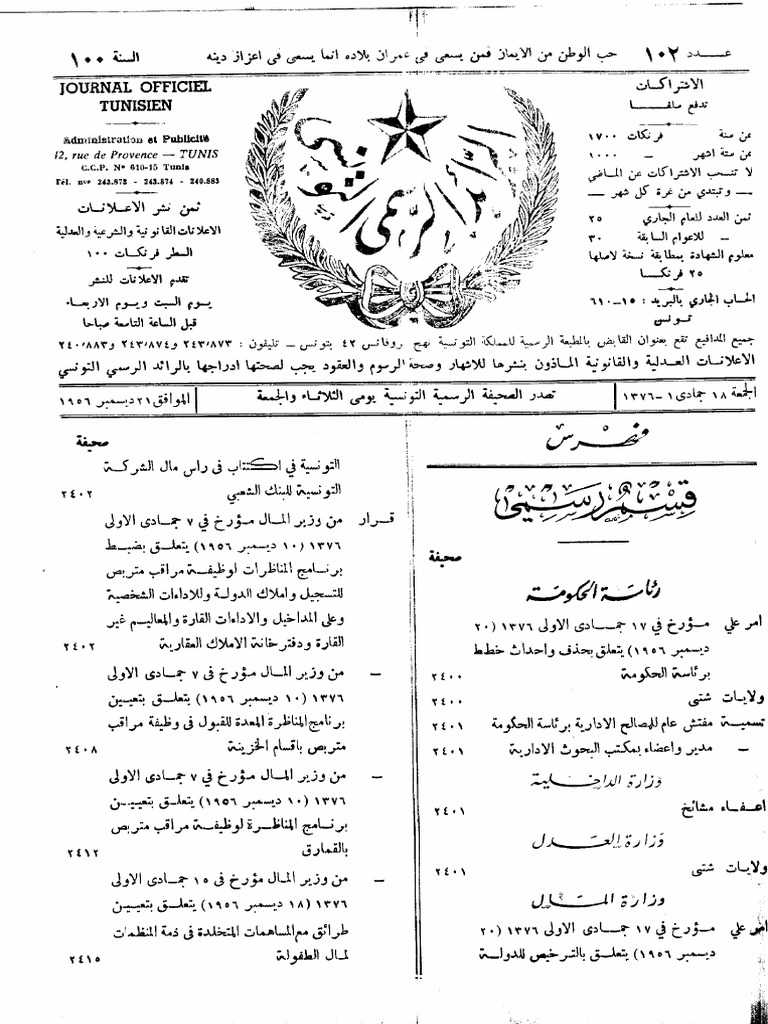 عـــدد ١٠٢ حب الوطن من الايمان فمن يسعى فى عمران بلاده انما يسعى فى اعزاز دينه السنة ١٠٠
الاشتراكات
تدفع سلفـا
ثمن سنة فرنكات ١٧٠٠
ثمن ستة اشهر — ١٠٠٠
لا تنسحب الاشتراكات عن الماضي
وتبتدي من غرة كل شهر
ثمن العدد للعام الجاري ٢٥
— للاعوام السابقة ٣٠
معلوم الشهادة بمطابقة نسخة لاصلها
٢٥ فرنكـا
الحساب الجاري بالبريد : ١٥-٦١٠
تونس
الرائد الرسمي التونسي
JOURNAL OFFICIEL
TUNISIEN
Administration et Publicité
42, rue de Provence — TUNIS
C.C.P. Nº 610-15 Tunis
Tél. nos 243.873 - 243.874 - 240.883
ثمن نشر الاعلانات
الاعلانات القانونية والشرعية والعدلية
السطر فرنكات ١٠٠
تقدم الاعلانات للنشر
يـوم السبت ويـوم الاربعـاء
قبل الساعة التاسعة صباحا
جميع المدافيع تقع بعنوان القابض بالمطبعة الرسمية للمملكة التونسية نهج بروفانس ٤٢ بتونس – تليفون : ٢٤٣/٨٧٣ و٢٤٣/٨٧٤ و٢٤٠/٨٨٣
الاعلانات العدلية والقانونية الماذون بنشرها للاشهار وصحة الرسوم والعقود يجب لصحتها ادراجها بالرائد الرسمي التونسي
الجمعة ١٨ جمادى ١ - ١٣٧٦ تصدر الصحيفة الرسمية التونسية يومي الثلاثاء والجمعة الموافق ٢١ ديسمبر ١٩٥٦
فهـرس
قسم رسمي
صحيفة
رئاسة الحكومة
امر علي مـؤرخ في ١٧ جمـادى الاولى ١٣٧٦ (٢٠
ديسمبر ١٩٥٦) يتعلق بحذف واحداث خطط
برئاسة الحكومة ٢٤٠٠
ولايـات شتى ٢٤٠٠
تسميـة مفتش عام للمصالح الادارية برئاسة الحكومة ٢٤٠١
— مدير واعضاء بمكتب البحوث الادارية ٢٤٠١
وزارة الداخلية
اعـفـاء مشائخ ٢٤٠١
وزارة العدل
ولايـات شتى ٢٤٠١
وزارة المال
امر علي مـؤرخ في ١٧ جمـادى الاولى ١٣٧٦ (٢٠
ديسمبر ١٩٥٦) يتعلق بالترخيص للدولة
صحيفة
التونسية في اكتتاب فى راس مال الشركة
التونسية للبنك الشعبي ٢٤٠٢
قـرار من وزير المـال مـؤرخ في ٧ جمـادى الاولى
١٣٧٦ (١٠ ديسمبر ١٩٥٦) يتعلـق بضبط
برنامج المناظرات لوظيفة مراقب متربص
للتسجيل واملاك الدولة وللاداءات الشخصية
وعلى المداخيل والاداءات القارة والمعاليم غير
القارة ودفترخانة الاملاك العقارية ٢٤٠٢
— من وزير المـال مـؤرخ في ٧ جمـادى الاولى
١٣٧٦ (١٠ ديسمبر ١٩٥٦) يتعلـق بتعييـن
برنامج المناظرة المعدة للقبول فى وظيفة مراقب
متربص باقسام الخزينة ٢٤٠٨
— من وزير المـال مـؤرخ في ٧ جمـادى الاولى
١٣٧٦ (١٠ ديسمبر ١٩٥٦) يتعلـق بتعييـن
برنامج المناظرة لوظيفة مراقب متربص
بالقمارق ٢٤١٢
— من وزير المـال مـؤرخ في ١٥ جمـادى الاولى
١٣٧٦ (١٨ ديسمبر ١٩٥٦) يتعلـق بتعييـن
طرائق مع المساهمات المتخلدة فى ذمة المنظمات
لمال الطفولة ٢٤١٥